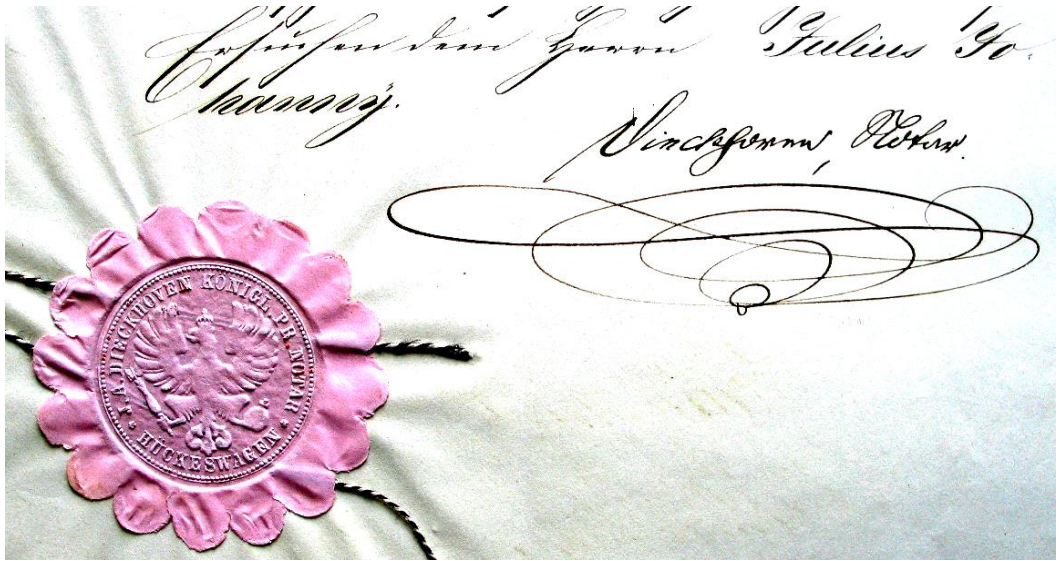 Ersuchen dem Herrn Julius Jo-
hanny.
Dieckhoven, Notar.
J. A. DIECKHOVEN KÖNIGL. PR. NOTAR
* HÜCKESWAGEN *